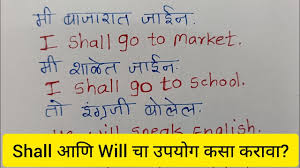 मी बाजारात जाईन.
I shall go to market.
मी शाळेत जाईन.
I shall go to school.
तो इंग्रजी बोलेल.
will speak English.
Shall आणि Will चा उपयोग कसा करावा?